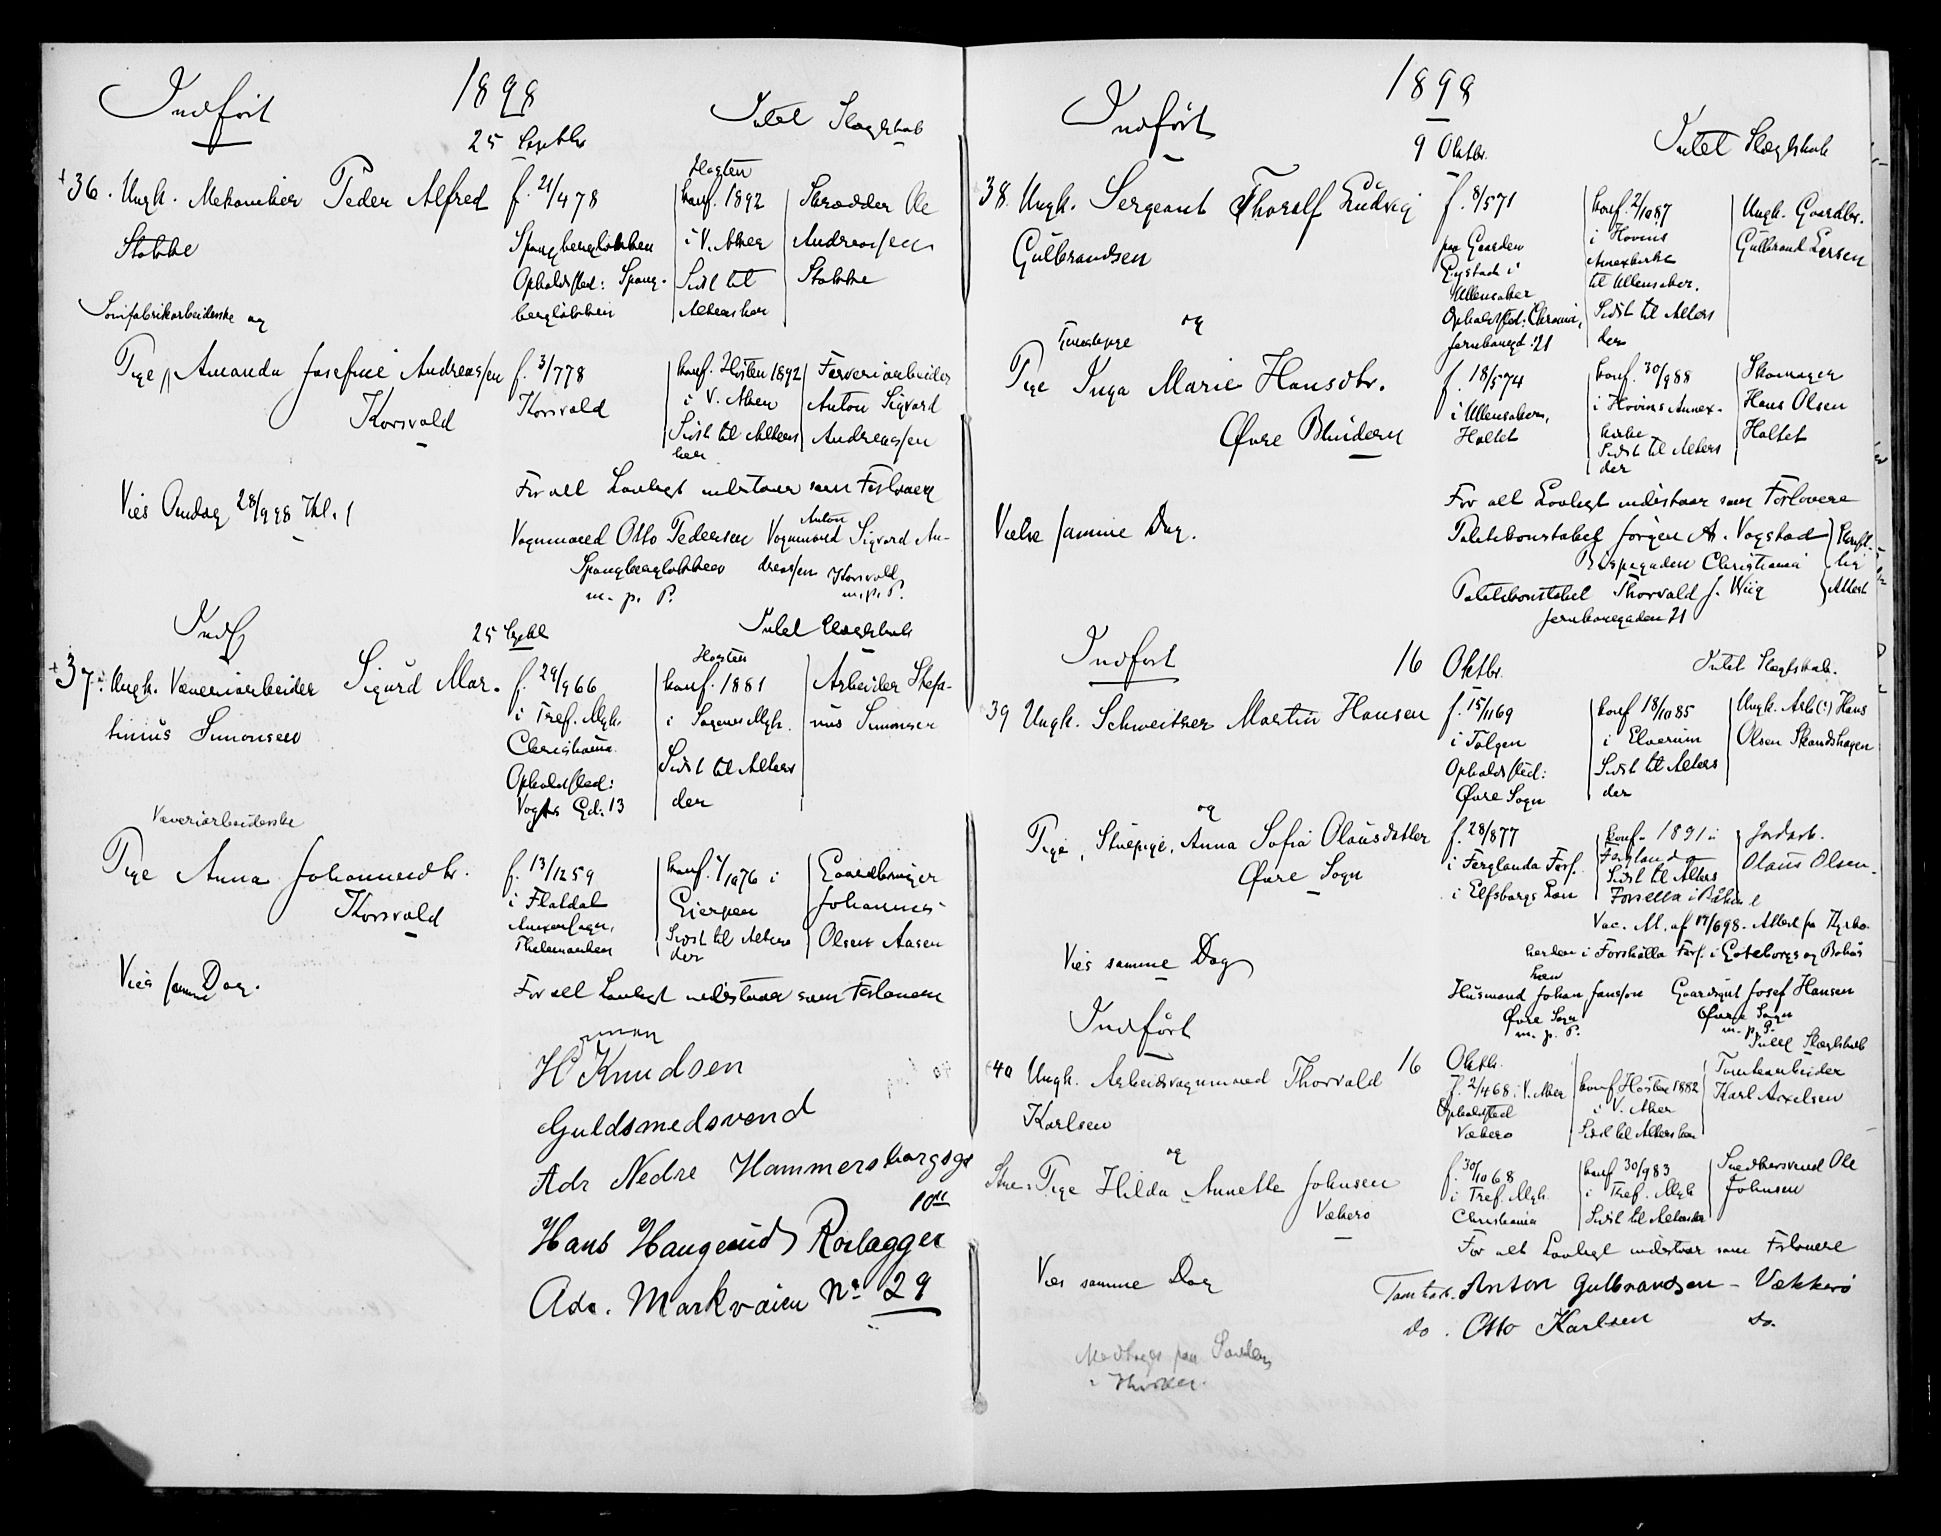 Indført
1898
25 Septbr
Intet Slægtskab
+36. Ungk. Mekaniker Peder Alfred
Stokke
f. 21/4 78
Spangbergløkken
Opholdssted: Spang-
bergløkken
Høsten
konf. 1892
i V. Aker
Sidst til
Alters her
Skrædder Ole
Andreassen
Stokke
og
Pige Amanda Josefine Andreassen
Korsvald
f. 3/7 78
Korsvold
konf. Høsten 1892
i V. Aker
Sidst til Alters
her
Farveriarbeider
Anton Sigvard
Andreassen
Vies Onsdag 28/9 98 Kl. 1
For alt Lovligt indestaar som Forlovere
Vognmand Otto Pedersen
Spangbergløkken
m. p. P.
Vognmand Anton Sigvard An-
dreassen Korsvold
m. p. P.
Indf
25 Septbr
Intet Slægtskab
+37. Ungk. Væveriarbeider Sigurd Mar-
tinius Simonsen
f. 29/9 66
i Tref. Mgh.
Christiania
Opholdssted:
Vogts Gd. 13
Høsten
konf. 1881
i Sagenes Mgh.
Sidst til Alters
der
Arbeider Stefa-
nus Simonsen
Væveriarbeiderske
Pige Anna Johannesdtr.
Korsvold
f. 13/12 59
i Flatdal
Annexsogn,
Thelemarken
konf. 1/10 76 i
Gjerpen
Sidst til Alters
der
Gaardbruger
Johannes
Olsen Aasen
Vies samme Dag.
For alt Lovligt indestaar som Forlovere
H Knudsen
Guldsmedsvend
Adr Nedre Hammersborgsgt
10
Hans Haugerud Rørlægger
Adr. Markveien No 29
1898
Indført
9 Oktbr.
Intet Slægtskab
38. Ungk. Sergeant Thoralf Ludvig
Gulbrandsen
f. 8/5 71
paa Gaarden
Gystad i
Ullensaker
Opholdssted: Chrania,
Jernbanegd. 21
konf. 2/10 87
i Hovins
Annexkirke
til Ullensaker.
Sidst til Alters
der
Ungk. Gaardbr.
Gulbrand Larsen
og
Pige Inga Marie Hansdtr.
Øvre Blindern
f. 18/5 74
i Ullensaker,
Holtet
konf. 30/9 88
i Hovins Annex-
kirke
Sidst til Alters
der
Skomager
Hans Olsen
Holtet
Vielse samme Dag.
For alt Lovligt indestaar som Forlovere
Politikonstabel Jørgen A. Vogstad
Bispegaden Christiania
Politikonstabel Thorvald J. Wiig
Jernbanegaden 21
Skrift-
lig
Attest
Indført
16 Oktbr.
Intet Slægtskab.
39 Ungk. Schweitser Martin Hansen
f. 15/11 69
i Tolgen
Opholdssted:
Øvre Sogn
konf 18/10 85
i Elverum
Sidst til Alters
der
Ungk. Arb(:) Hans
Olsen Skandshagen
og
Pige, Stuepige, Anna Sofia Olausdatter
Øvre Sogn
f. 28/8 77
i Ferglanda Fors.
i Elfsborgs Len
konf. 1891 i
Ferglanda
Sidst til Alters
Jordarb.
Olaus Olsen.
Vac. M. af 17/6 98. Attest fra Kyrko-
herden i Forshälla Fors. i Göteborgs og Bohus
Len
Vies samme Dag
Husmand Johan Jansson
Øvre Sogn
m. p. P.
Gaardsgut Josef Hansen
Øvre Sogn
m. p. P.
Indført
16 Oktbr.
Intet Slægtskab
40 Ungk. Arbeidsvognmand Thorvald
Karlsen
f. 2/4 68 i V. Aker
Opholdssted
Vækerø
konf Høsten 1882
i V. Aker
Sidst til Alters her
Tomtearbeider
Karl Axelsen
og
Pige Hilda Annette Johnsen
Vækerø
f. 30/10 68
i Tref. Mgh.
Christiania
konf 30/9 83
i Tref. Mgh
Sidst til Alters der
Snedkersvend Ole
Johnsen
Vies samme Dag
For alt Lovligt indestaar som Forlovere
Tomtearb. Anton Gulbrandsen - Vækkerø
do. Otto Karlsen do.